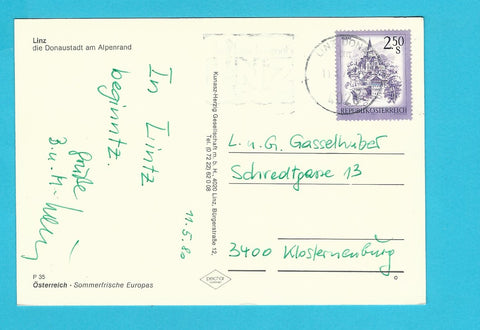 Linz
die Donaustadt am Alpenrand
In Lintz
beginntz.
Grüße
11.5.80
P 35
Österreich - Sommerfrische Europas
Kunasz-Herzig Gesellschaft m. b. H., 4020 Linz, Bürgerstraße 12,
Tel. (072 22) 62 0 08
2.50
S
REPUBLIK ÖSTERREICH
L. u. G. Gasselhuber
Schredtgasse 13
3400 Klosterneuburg